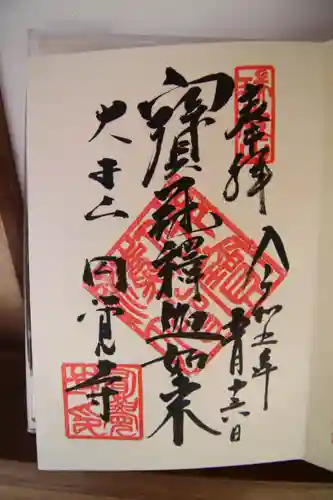 奉拝
令和五年
十月十六日
寳冠釋迦如来
大本山
円覚寺